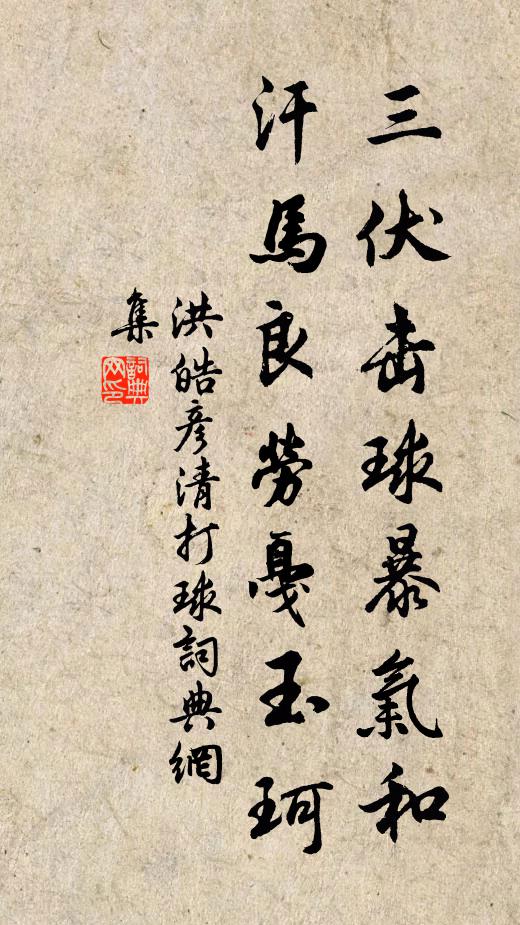 三伏击球暴氣和
汗馬良勞戛玉珂
洪皓彥清打球詞典網
集
詞典
网印